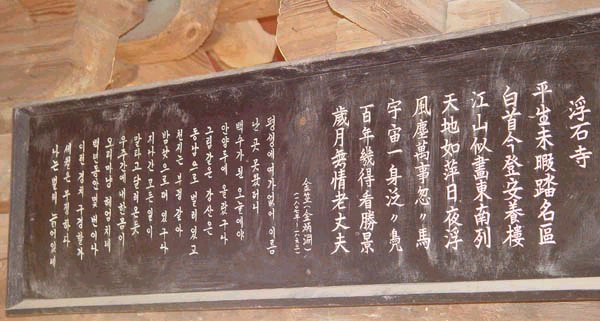 浮石寺
平生未暇踏名區
白首今登安養樓
江山似畵東南列
天地如萍日夜浮
風塵萬事忽〃馬
宇宙一身泛〃鳧
百年幾得看勝景
歲月無情老丈夫
金笠(金炳淵)
(一八〇七-一八六三)
평생에 여가 없어 이름
난 곳 못왔더니
백수가 된 오늘에야
안양루에 올랐구나
그림같은 강산은
동남으로 벌려있고
천지는 부평같아
밤낮으로 떠 있구나
지나간 모든 일이
말타고 달려온 듯
우주간에 내 한몸이
오리마냥 헤엄치네
백년동안 몇번이나
이런 경치 구경할까
세월은 무정하다
나는 벌써 늙어있네